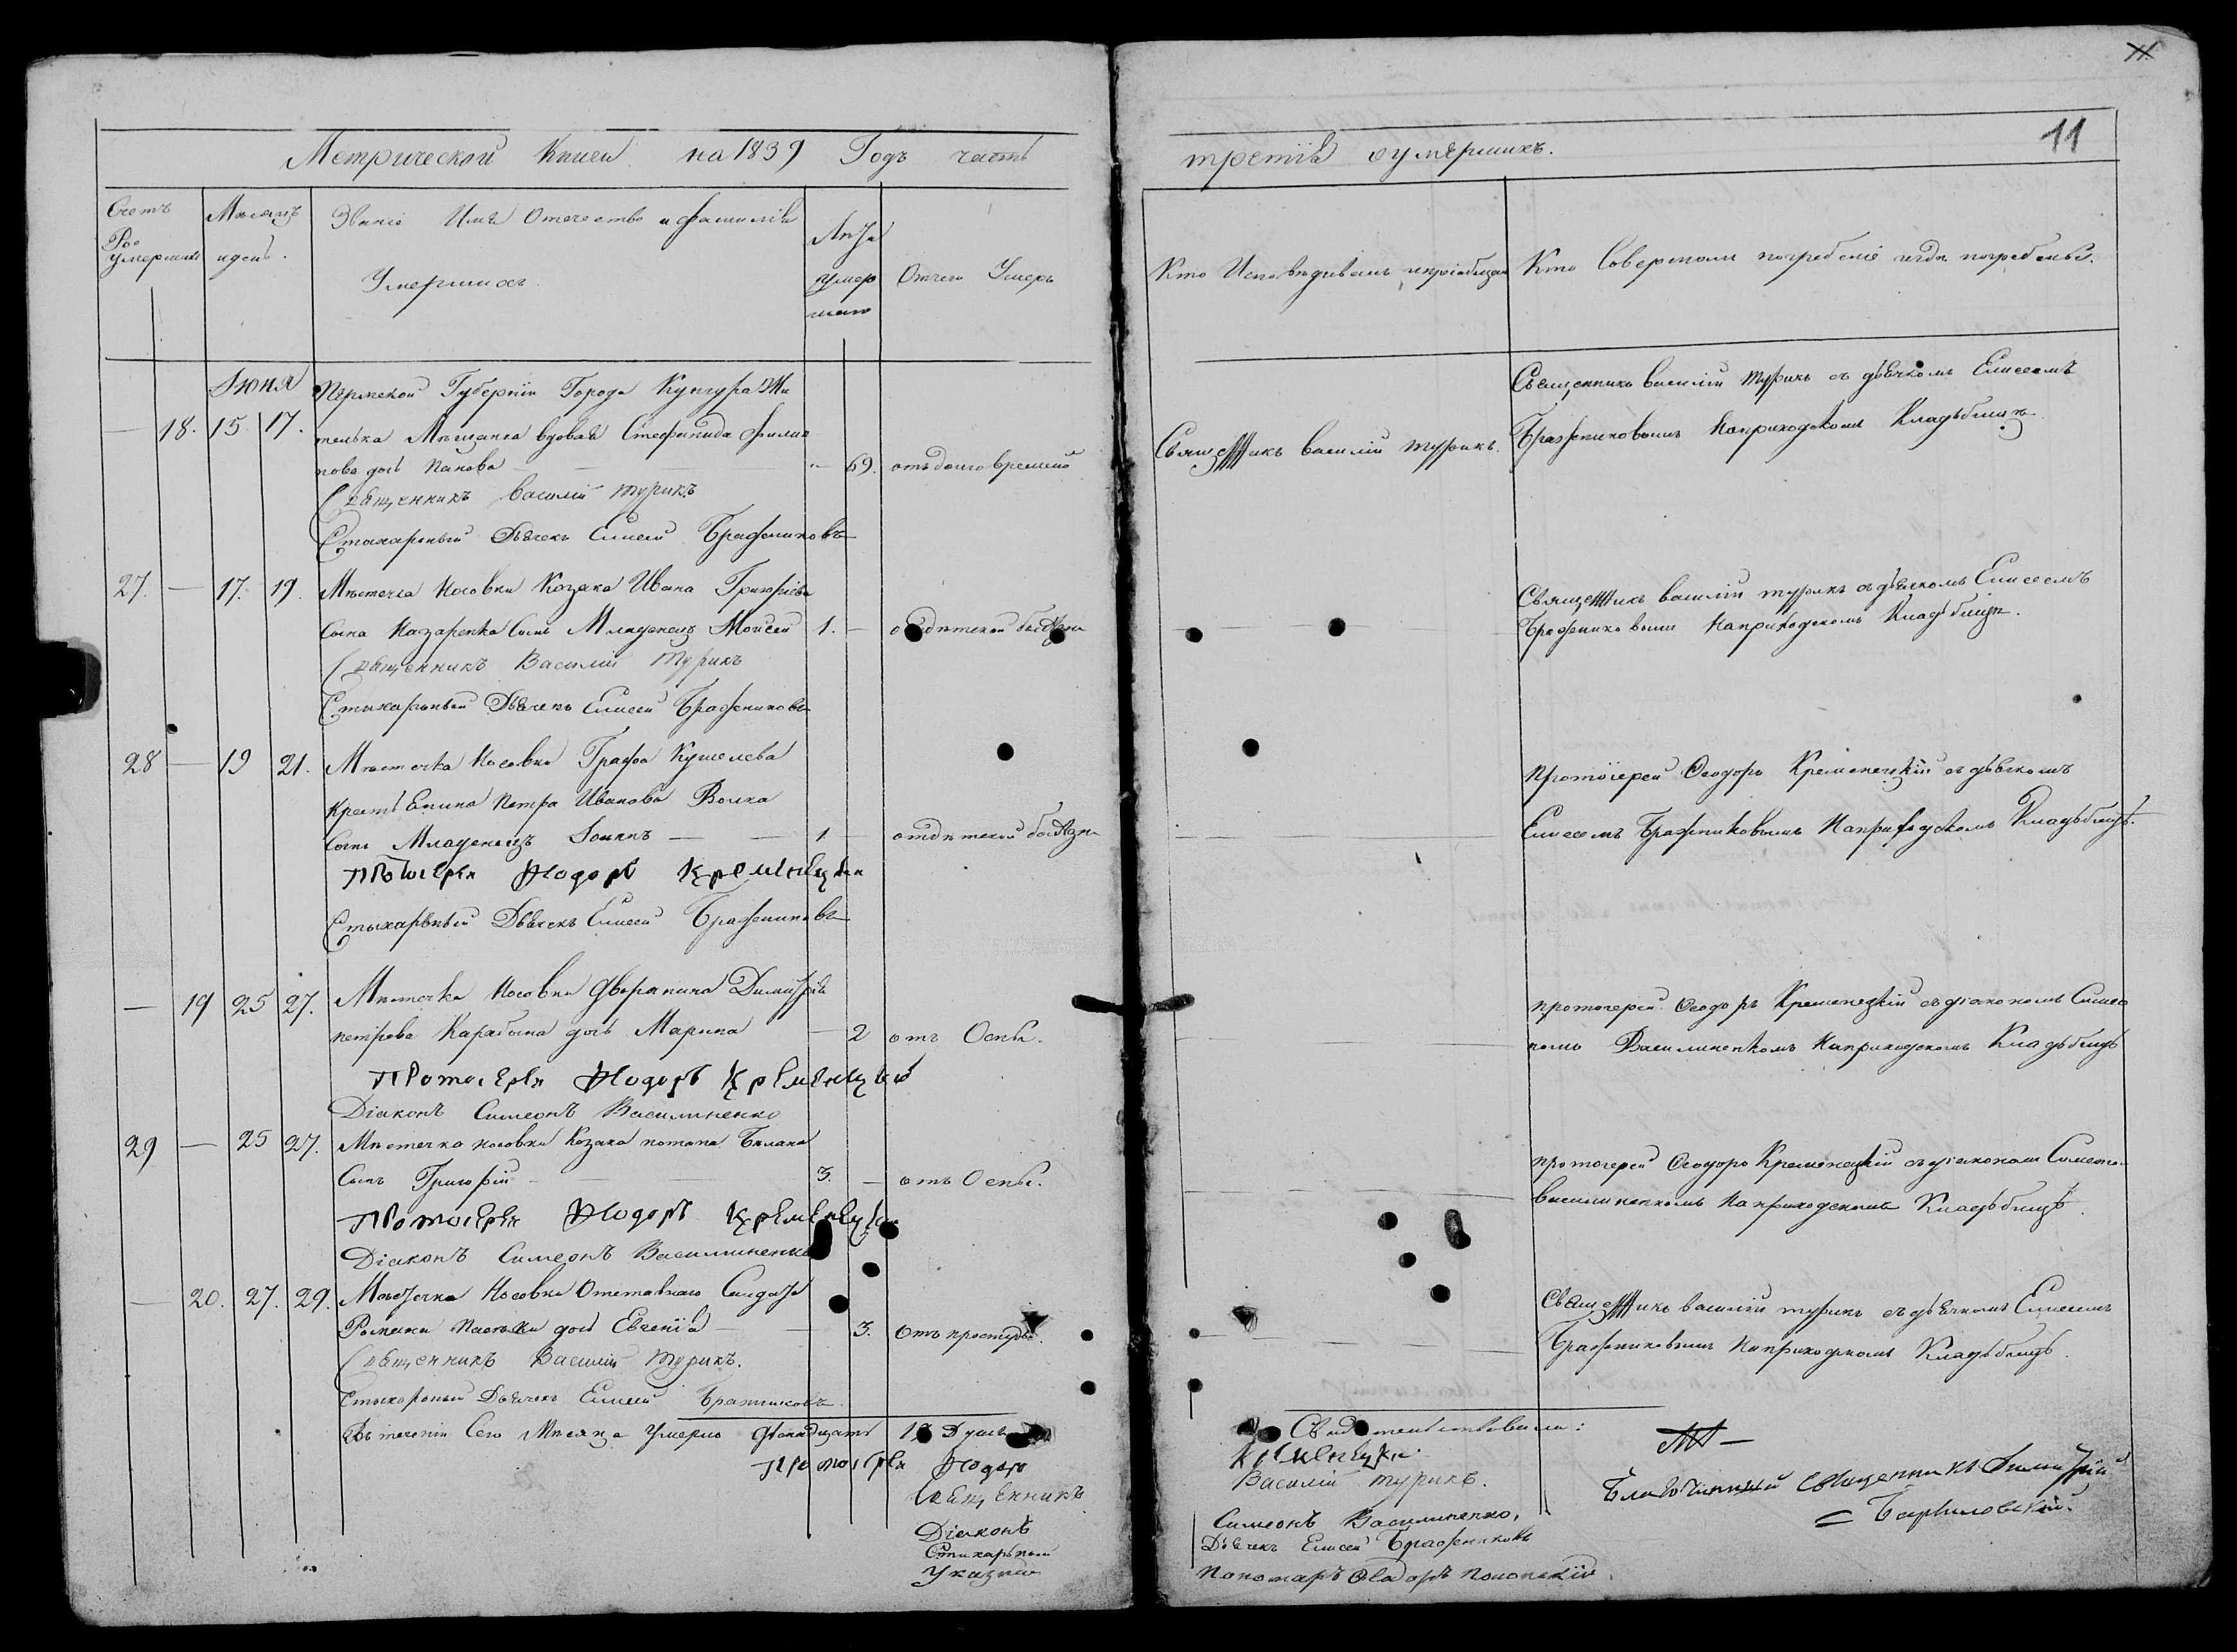 11
Метрической Книги на 1839 Годъ часть третїѧ о умершихъ.
Счетъ умершихъ
Мѣсяцъ и день.
Званіе Имя Отечество и фамилія
Умершихъ
Лѣта умершаго
Отчего Умеръ
Кто Исповѣдывалъ и пріобщалъ
Кто Совершалъ погребеніе и гдѣ погребены.
Іюня
18. 15 17.
Пермской Губерніи Города Кунгура Жи
телька Мѣщанка вдова Стефанида филип
пова дочь Панова
69.
Священникъ василій турикъ.
Священникъ василій турикъ съ дьячкомъ Елисеемъ
Бражниковымъ На приходскомъ Кладбищѣ
Священникъ василій турикъ
Стихарный Дьячекъ Елисей Бражниковъ
27. — 17. 19.
Мѣстечка Носовки Козака Ивана Григорієва
сына Назаренка Сынъ Младенецъ Моисей 1. —
отъ дѣтской болѣзни
Священникъ василій турикъ съ дьячкомъ Елисеемъ
Бражниковымъ На приходскомъ Кладбищѣ.
Священникъ Василій турикъ
Стихарный Дьячекъ Елисей Бражниковъ
28 — 19 21.
Мѣстечка Носовки Графа Кушелева
крестьянина Петра Иванова Волка
Сынъ Младенецъ Іоаннъ — 1
отъ дѣтской болѣзни
протоїерей Ѳеодоръ Кременецкій съ дьячкомъ
Елисеемъ Бражниковымъ На приходскомъ Кладбищѣ.
Протоіерей Ѳеодоръ Кременецкій
Стихарный Дьячекъ Елисей Бражниковъ
— 19 25 27.
Мѣстечка Носовки дворянина Димитрія
петрова Карабына дочь Марина — 2
отъ Оспы.
протоіерей Ѳеодоръ Кременецкій съ діакономъ Симео
номъ Василиненкомъ На приходскомъ Кладбищѣ
Протоіерей Ѳеодоръ Кременецкій
Діаконъ Симеонъ Василиненко
29 — 25 27.
Мѣстечка Носовки Козака потапа
Сынъ Григорій 3. —
отъ Оспы.
протоіерей Ѳеодоръ Кременецкій съ діакономъ Симеоно
василиненкомъ На приходскомъ Кладбищѣ.
Протоіерей Ѳеодоръ Кременецкій
Діаконъ Симеонъ Василиненко
— 20. 27. 29.
Мѣстечка Носовки Отставнаго Салдата
Романа дочь Евгенія — 3.
Отъ простуды.
Священникъ василій турикъ съ дьячкомъ Елисеемъ
Бражниковымъ На приходскомъ Кладбищѣ.
Священникъ Василій турикъ.
Стихарный Дьячекъ Елисей Бражниковъ
Въ теченіи Сего Мѣсяца Умерло двенадцать Душъ
Свидетельствовали:
Протоіерей Ѳеодоръ Кременецкій
Священникъ Василій турикъ.
Діаконъ Симеонъ Василиненко,
Стихарный Дьячекъ Елисей Бражниковъ
Указный Пономаръ
Благочинный Священникъ Димитрій